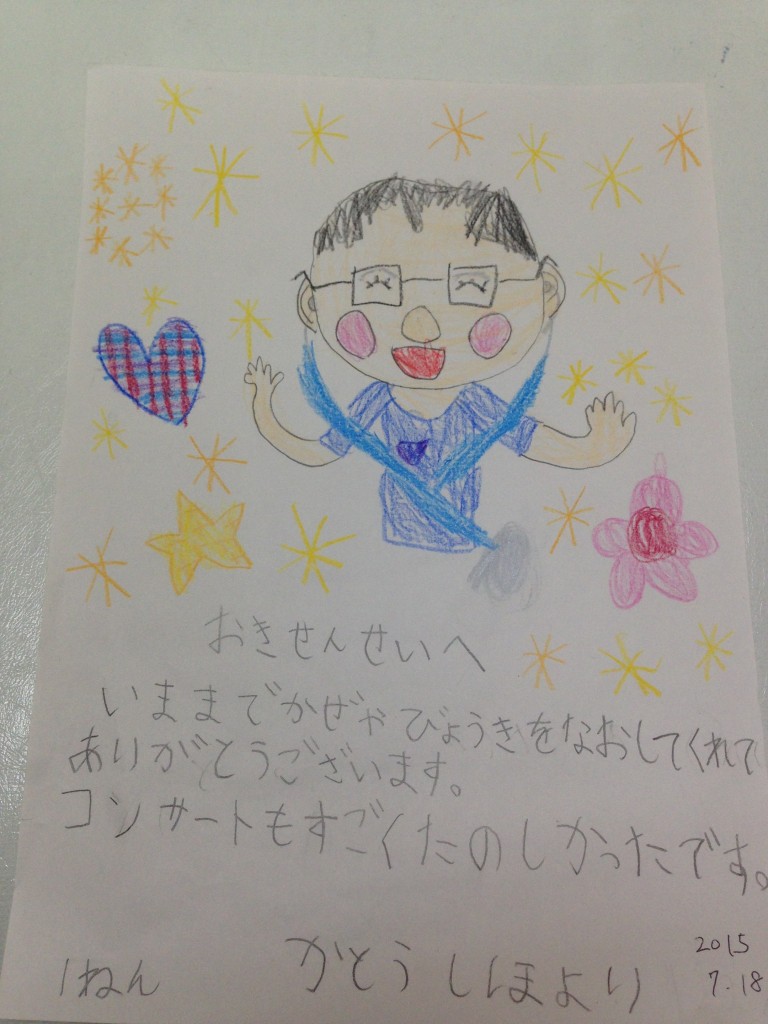 おきせんせいへ
いままでかぜやびょうきをなおしてくれて
ありがとうございます。
コンサートもすごくたのしかったです。
1ねん かとうしほより
2015
7.18